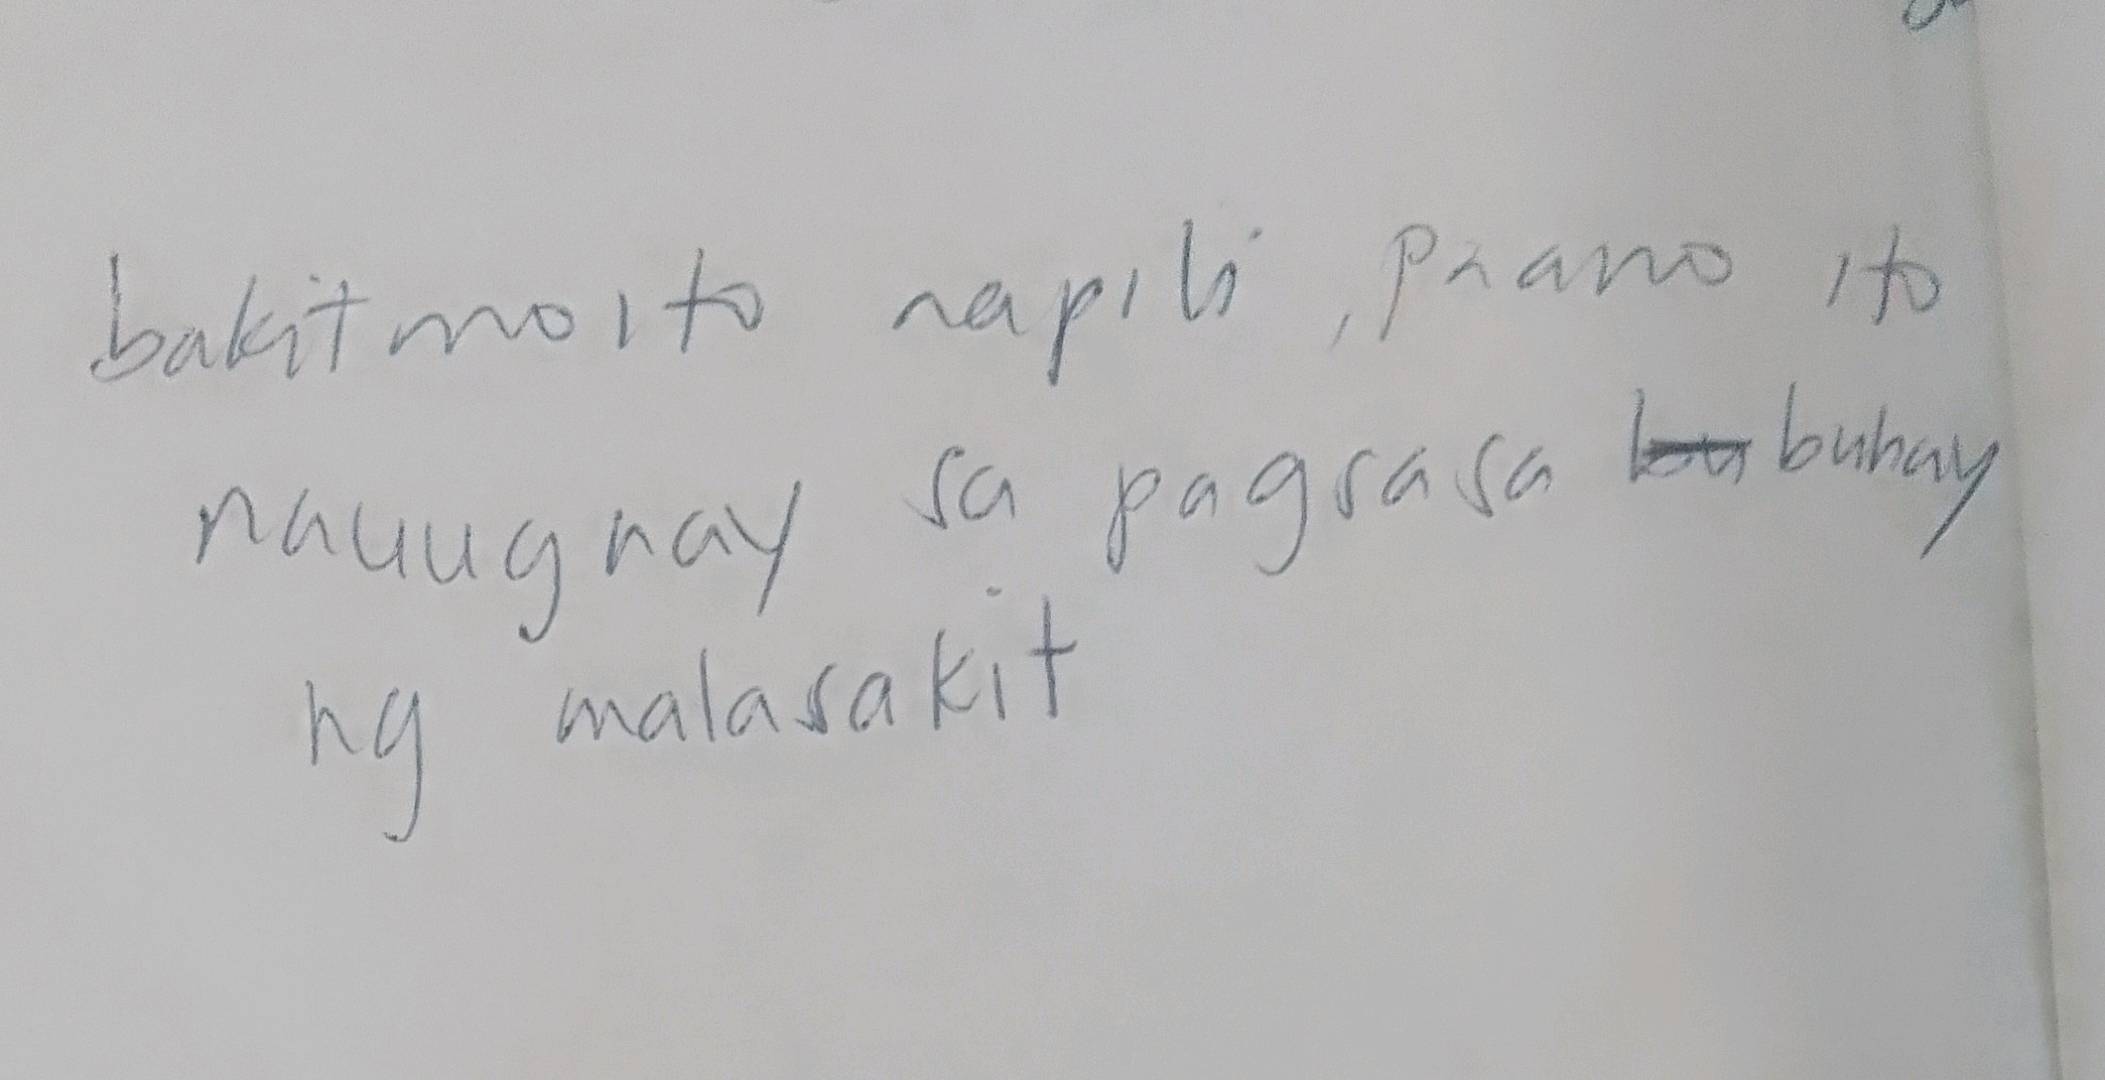 bakit mo ito napili, paano ito
nauugnay sa pagsasa buhay
ng malasakit